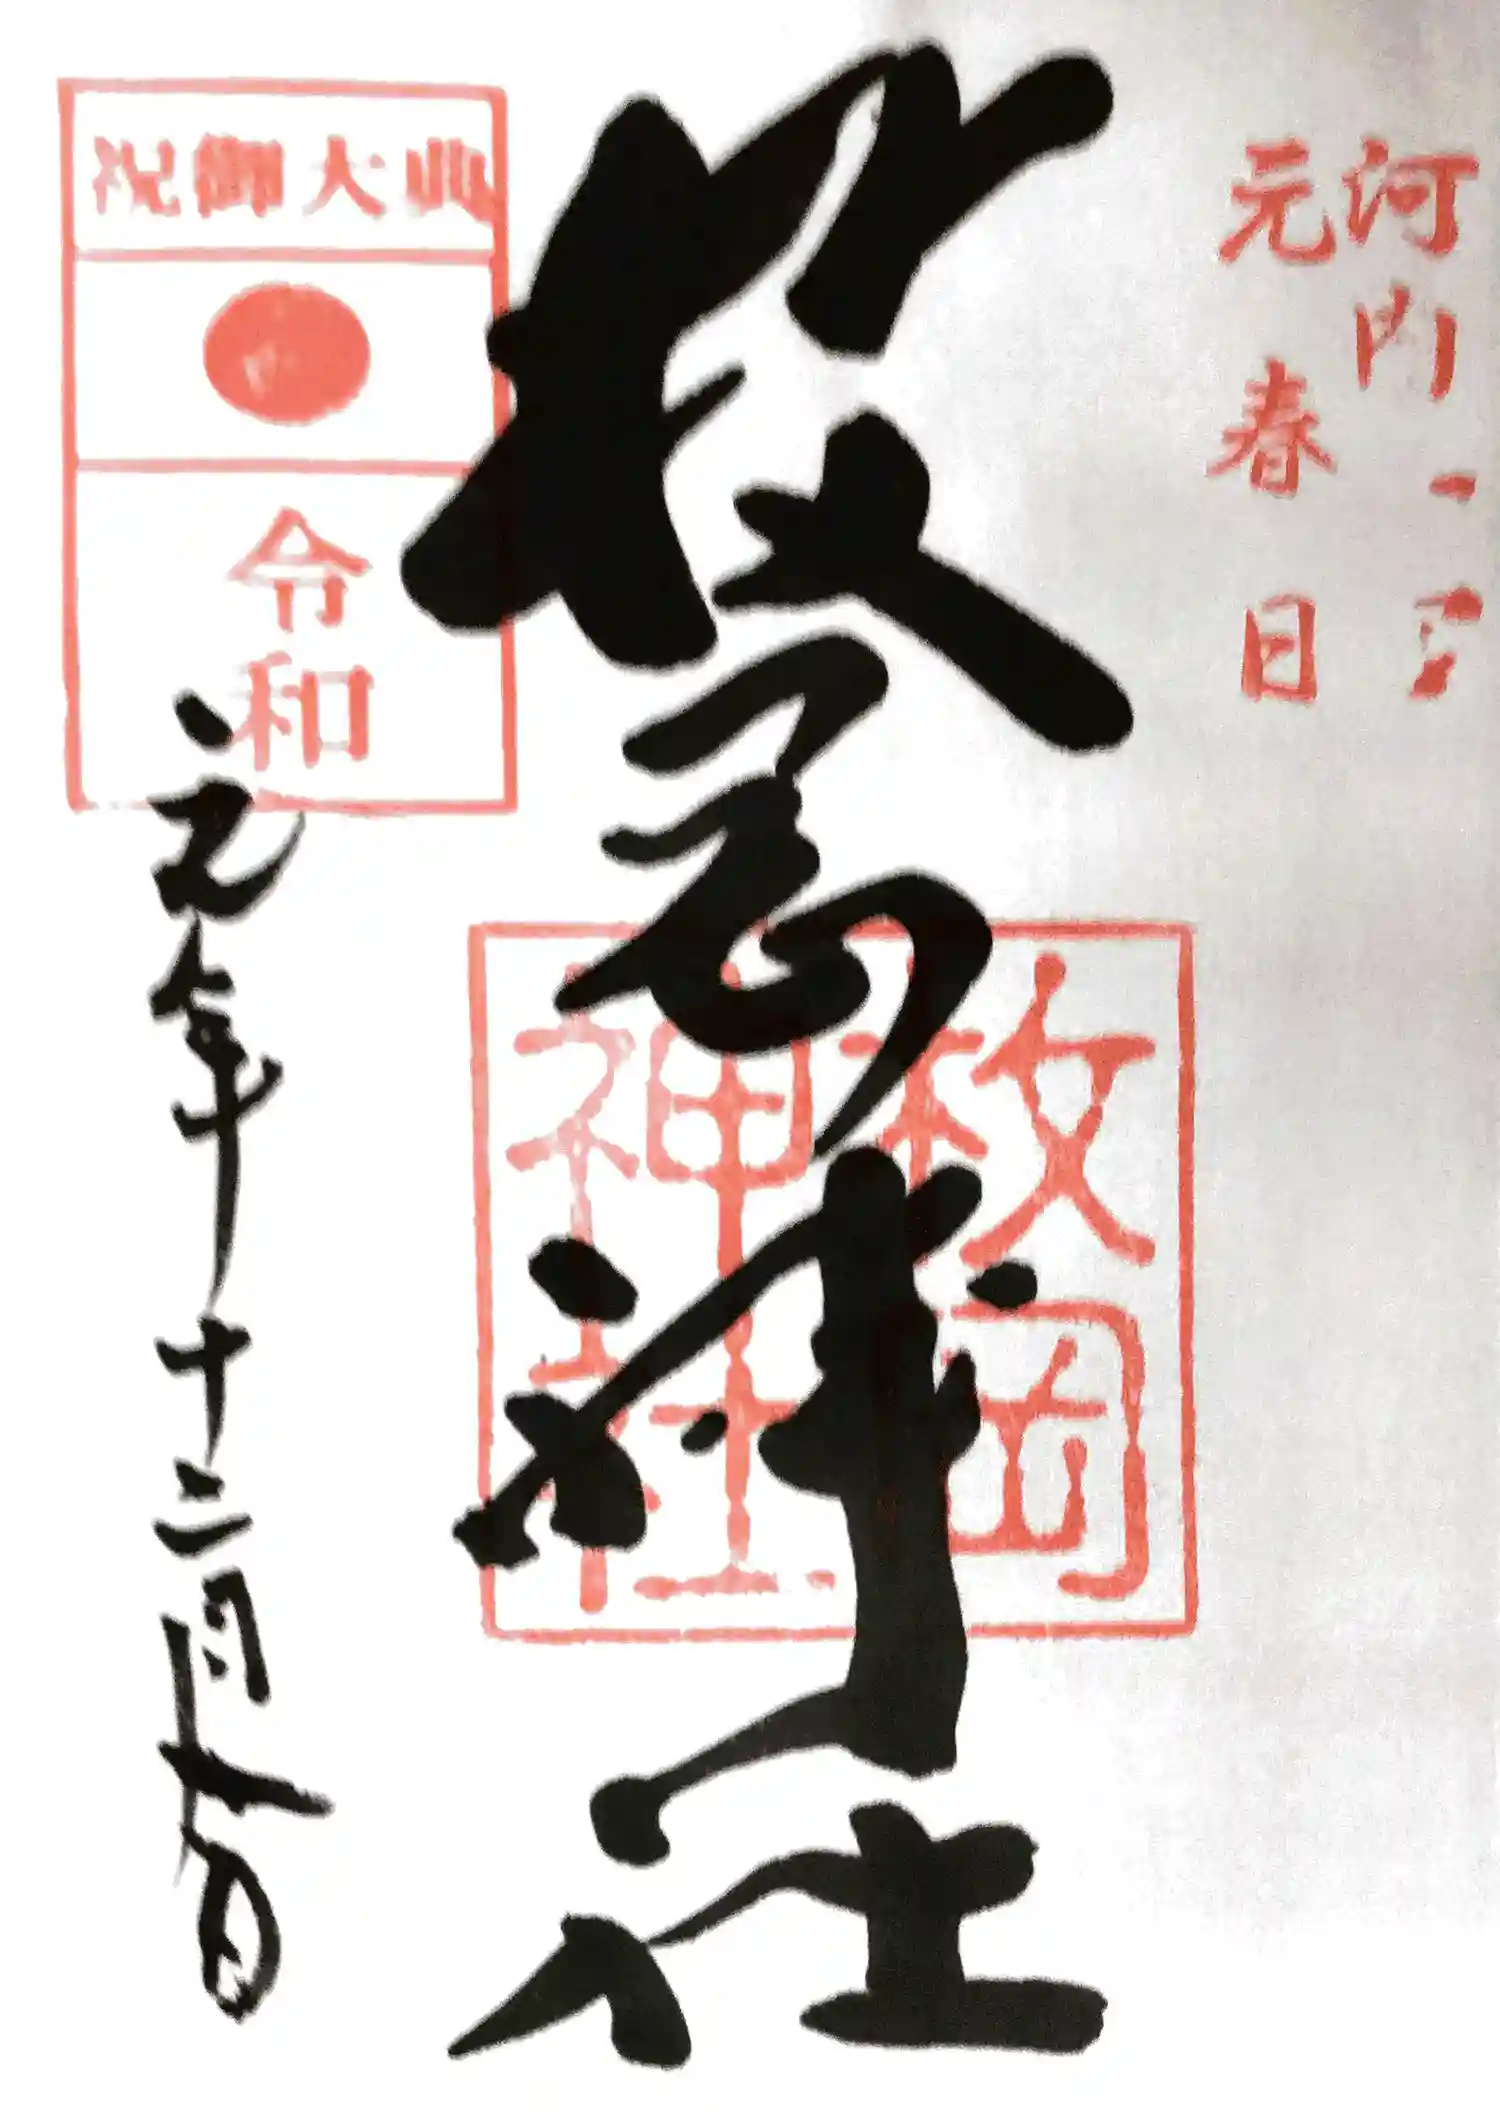 河内一宮
元春日
枚岡神社
枚岡
神社
祝御大典
令和
元年十二月十日